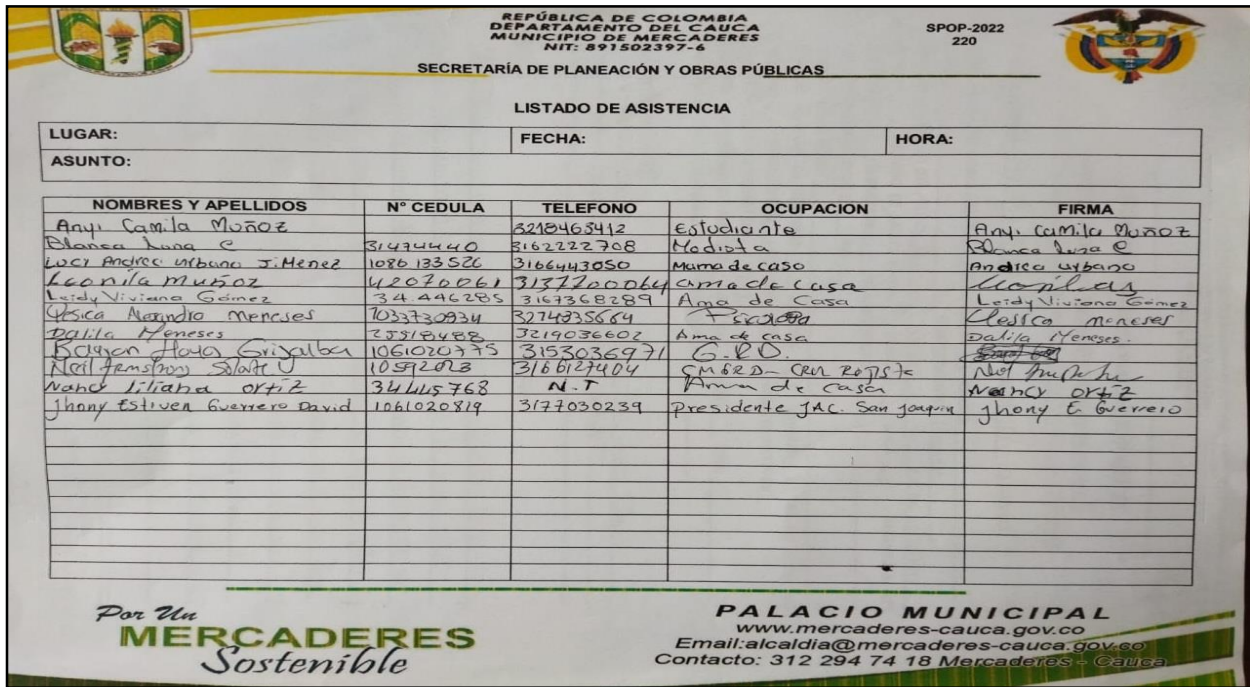 REPÚBLICA DE COLOMBIA
DEPARTAMENTO DEL CAUCA
MUNICIPIO DE MERCADERES
NIT: 891502397-6
SPOP-2022
220
SECRETARÍA DE PLANEACIÓN Y OBRAS PÚBLICAS
LISTADO DE ASISTENCIA
LUGAR: FECHA: HORA:
ASUNTO:
NOMBRES Y APELLIDOS N° CEDULA TELEFONO OCUPACION FIRMA
Anyi Camila Muñoz 3218465412 Estudiante Anyi Camila Muñoz
Blanca Luna C 31474440 3162222708 Modista Blanca Luna C
Lucy Andrea urbano JiMenez 1086133526 3166443050 Mama de caso Andrea urbano
Leonila Muñoz 42070061 3137700064 ama de casa
Leidy Viviana Gómez 34.446285 3167368289 Ama de Casa Leidy Viviana Gómez
Yesica Alexandra Meneses 1033730934 3274835664 Yessica Meneses
Dalila Meneses 25518488 3219036602 Ama de casa Dalila Meneses.
Grijalba 1061020775 3153036971 G.R.D.
Neil Armstrong Solarte U 3166127404
Nancy Liliana ortiz 34445768 N-T Ama de casa Nancy ortiz
jhony Estiven Guerrero David 1061020819 3177030239 presidente JAC. San joaquin jhony E Guerrero
Por Un
MERCADERES
Sostenible
PALACIO MUNICIPAL
www.mercaderes-cauca.gov.co
Email:alcaldia@mercaderes-cauca.gov.co
Contacto: 312 294 74 18 Mercaderes - Cauca